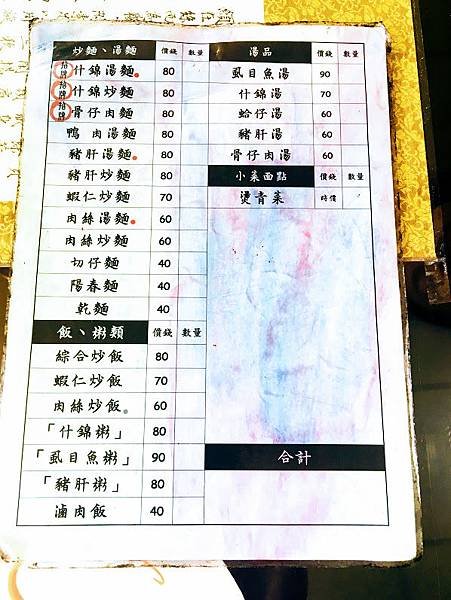 炒麵、湯麵 價錢 數量
招牌 什錦湯麵 80
招牌 什錦炒麵 80
招牌 骨仔肉麵 80
鴨肉湯麵 80
豬肝湯麵 80
豬肝炒麵 80
蝦仁炒麵 70
肉絲湯麵 60
肉絲炒麵 60
切仔麵 40
陽春麵 40
乾麵 40
飯、粥類 價錢 數量
綜合炒飯 80
蝦仁炒飯 70
肉絲炒飯 60
「什錦粥」 80
「虱目魚粥」 90
「豬肝粥」 80
滷肉飯 40
湯品 價錢 數量
虱目魚湯 90
什錦湯 70
蛤仔湯 60
豬肝湯 60
骨仔肉湯 60
小菜面點 價錢 數量
燙青菜 時價
合計